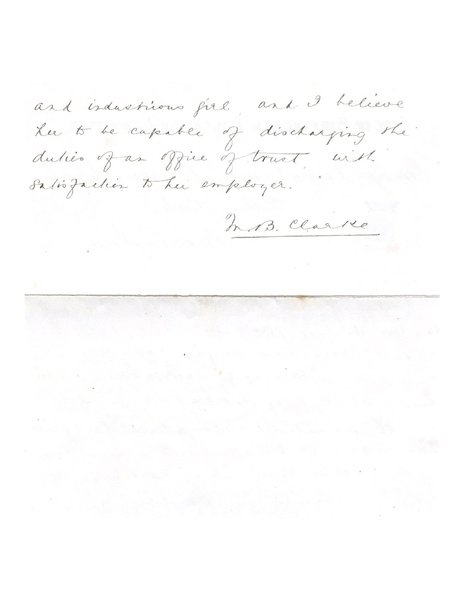 and industrious girl and I believe
her to be capable of discharging the
duties of an office of trust with
satisfaction to her employer.
M. B. Clarke